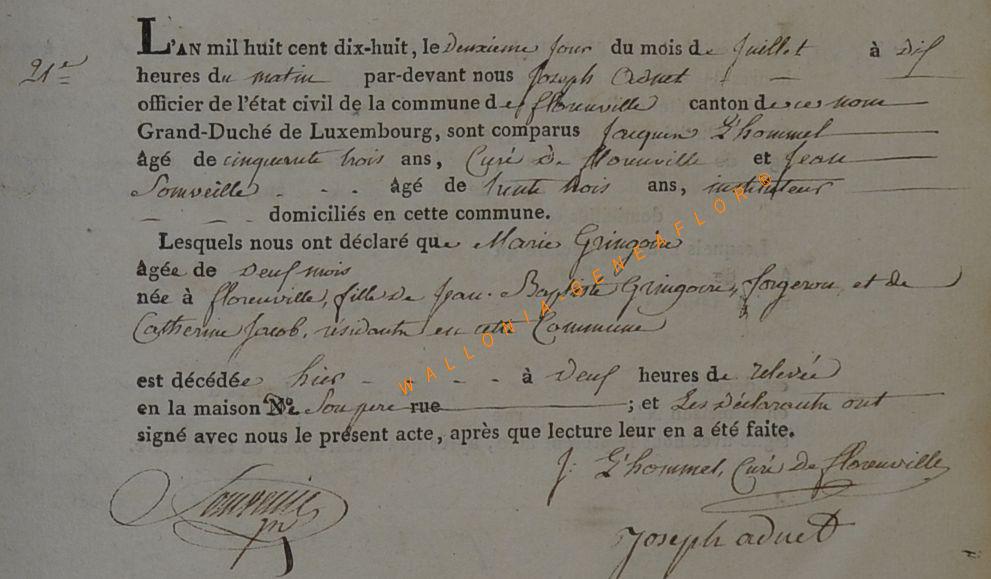 21e
L'AN mil huit cent dix-huit, le deuxieme jour du mois de Juillet à dix
heures du matin par-devant nous Joseph Adnet
officier de l'état civil de la commune de florenville canton de ce nom
Grand-Duché de Luxembourg, sont comparus Jacques L'hommel
âgé de cinquante trois ans, Curé de florenville et Jean
âgé de trente trois ans, instituteur
domiciliés en cette commune.
Lesquels nous ont déclaré que Marie Gringoire
âgée de deux mois
née à florenville, fille de Jean-Baptiste Gringoire, forgeron et de
Catherine Jacob, résidante en cette Commune
est décédée hier à deux heures de relevée
en la maison Nº de Son pere rue ; et Les déclarants ont
signé avec nous le présent acte, après que lecture leur en a été faite.
J: L'hommel, Curé de florenville
Joseph adnet
WALLONIA-GENEAFLOR®